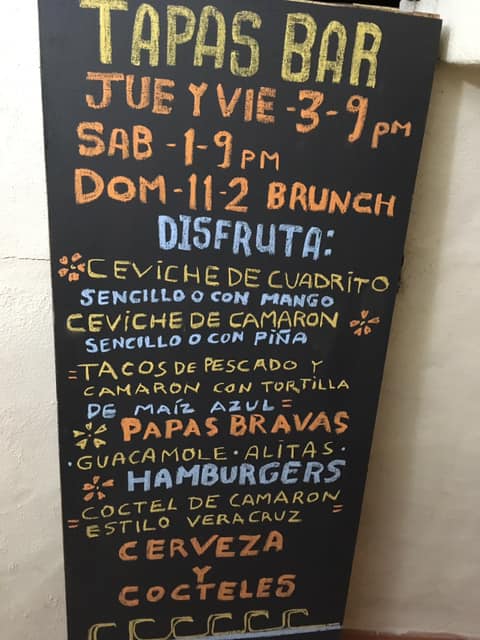 TAPAS BAR
JUE Y VIE - 3-9 PM
SAB - 1-9 PM
DOM - 11-2 BRUNCH
DISFRUTA:
CEVICHE DE CUADRITO
SENCILLO O CON MANGO
CEVICHE DE CAMARON
SENCILLO O CON PIÑA
=TACOS DE PESCADO Y
CAMARON CON TORTILLA
DE MAÍZ AZUL=
PAPAS BRAVAS
·GUACAMOLE·ALITAS·
HAMBURGERS
COCTEL DE CAMARON
=ESTILO VERACRUZ=
CERVEZA
Y
COCTELES